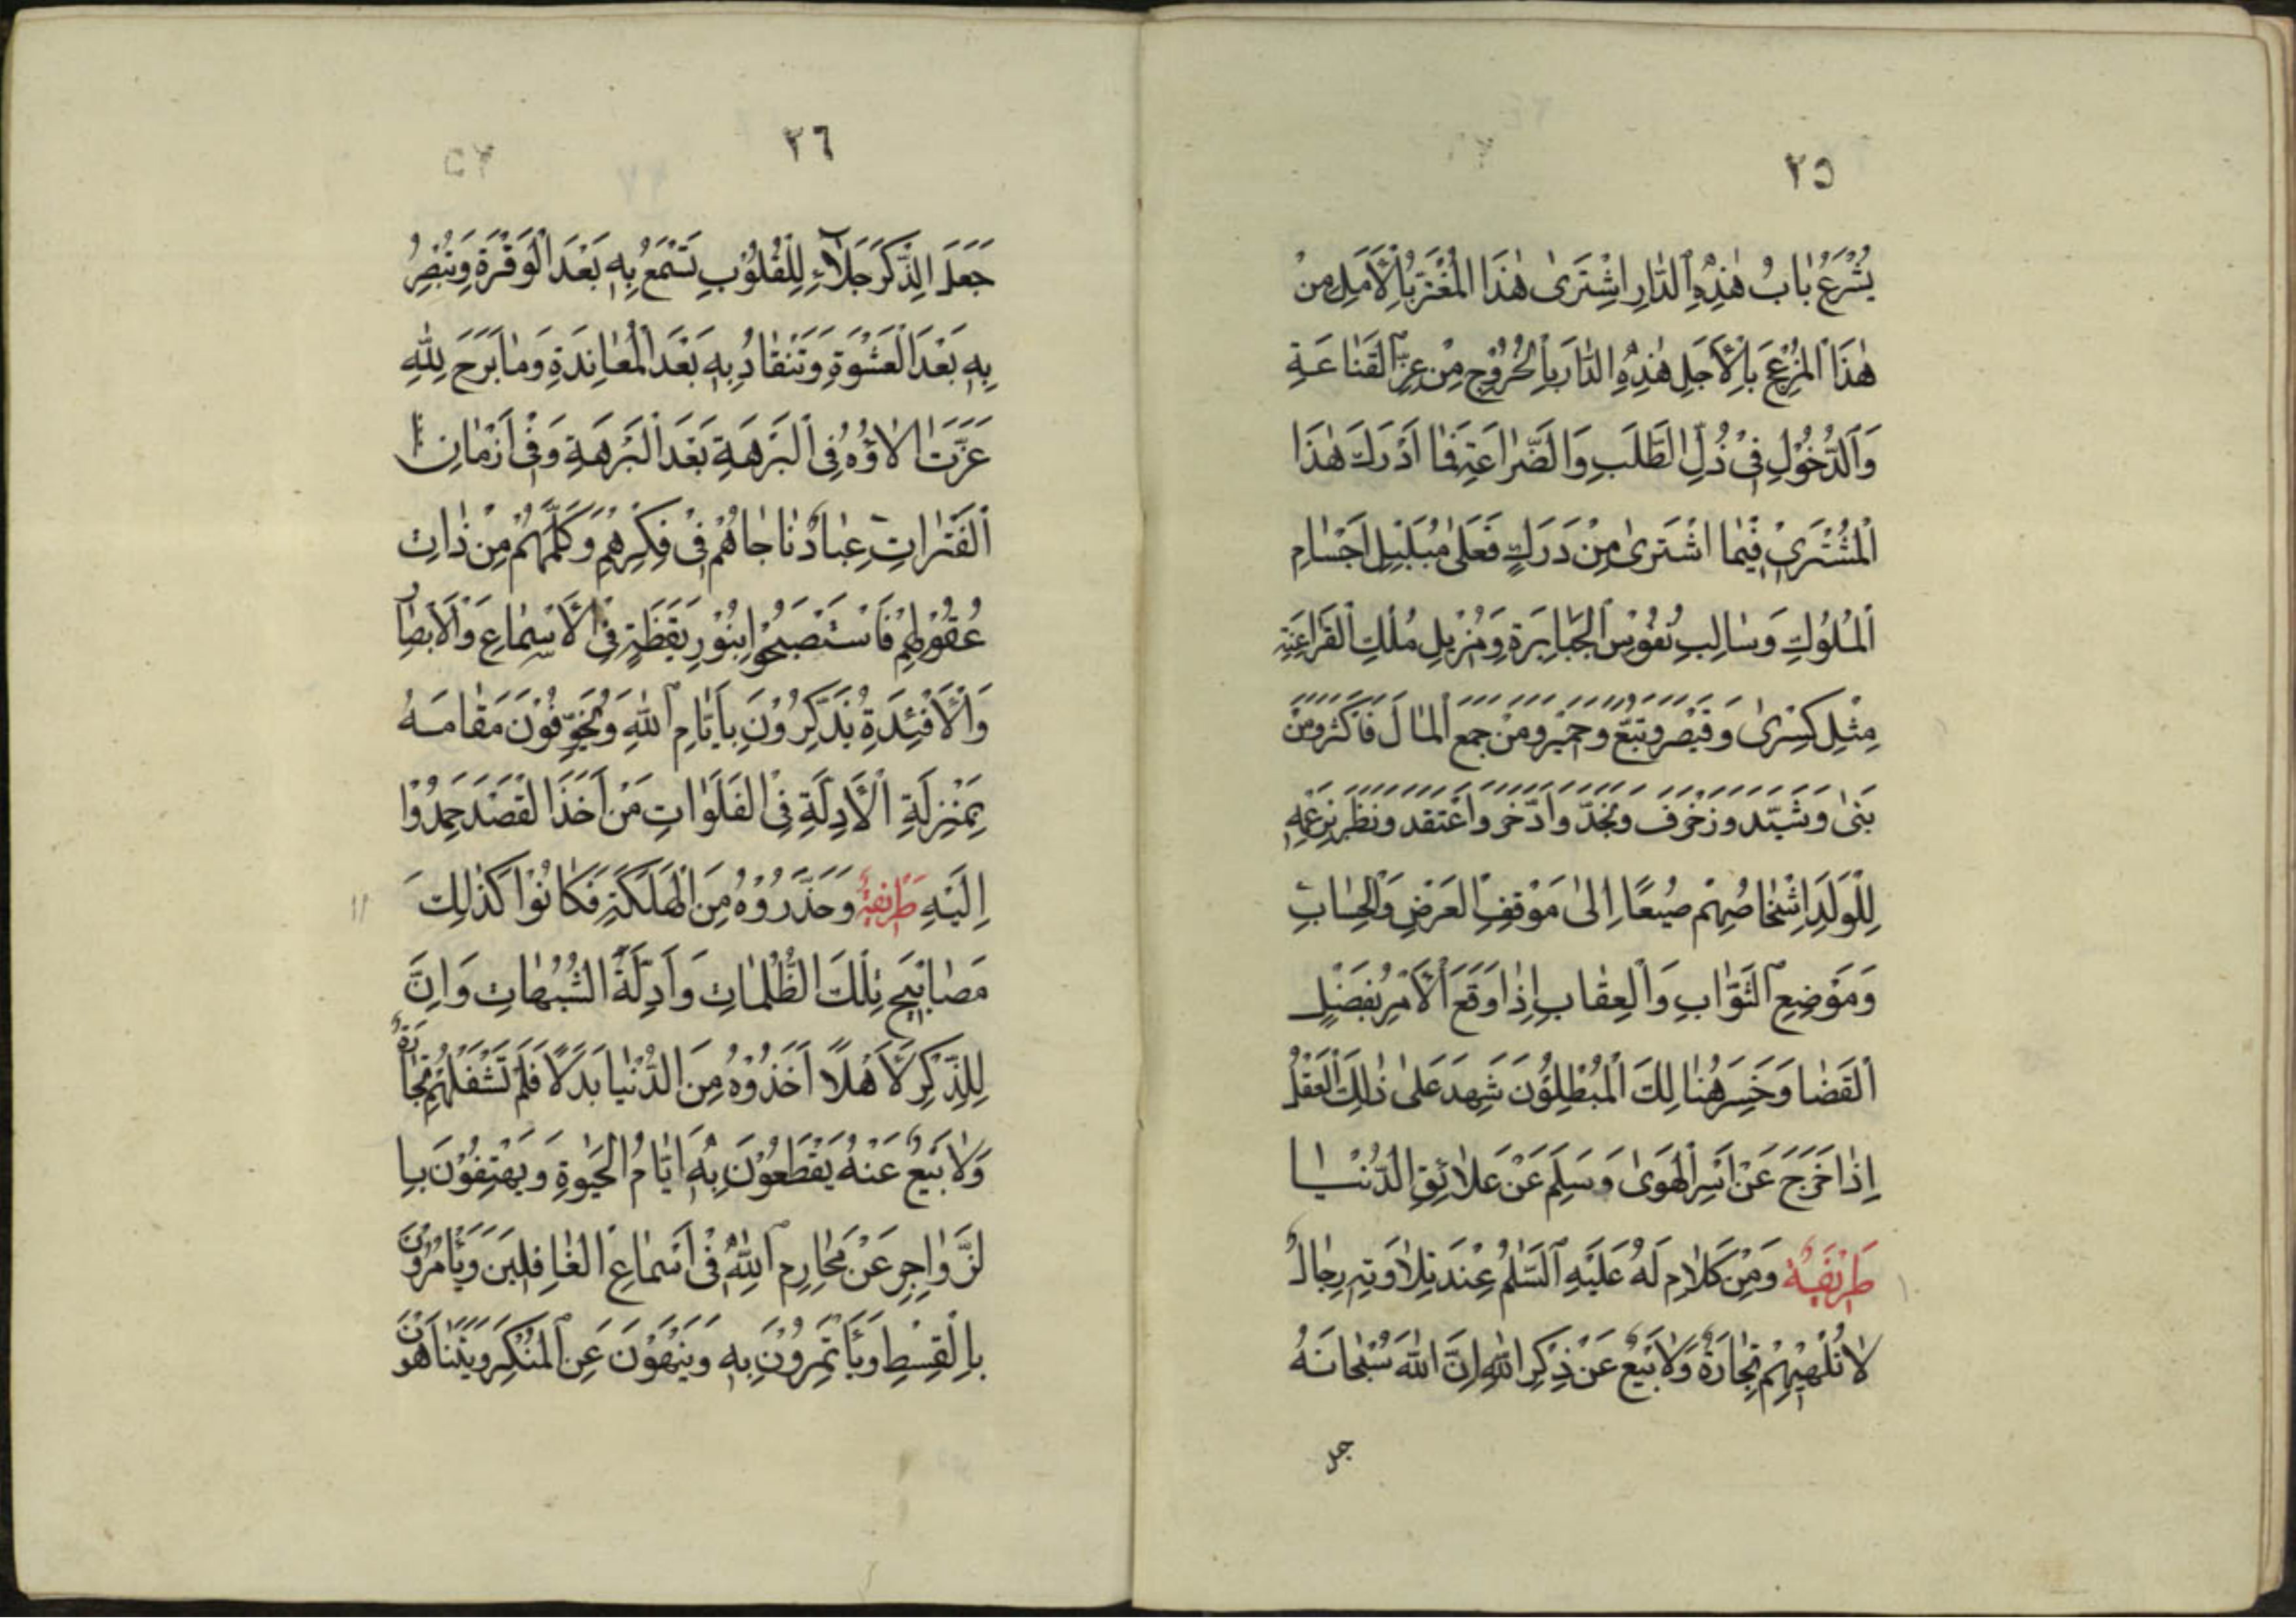 ٢٥
يُشْرَعُ بٰابُ هٰذِهِ الدّٰارِ اشْتَرىٰ هٰذَا الْمُغْتَرُّ بِالْأَمَلِ مِنْ
هٰذَا الْمُزْعَجِ بِالْأَجَلِ هٰذِهِ الدّٰارَ بِالْخُرُوْجِ مِنْ عِزِّ الْقَنٰاعَةِ
وَالدُّخُوْلِ فِيْ ذُلِّ الطَّلَبِ وَالضَّرٰاعَةِ فَمٰا اَدْرَكَ هٰذَا
الْمُشْتَرِيْ فِيْمٰا اشْتَرىٰ مِنْ دَرَكٍ فَعَلىٰ مُبَلْبِلِ اَجْسٰامِ
الْمُلُوْكِ وَسٰالِبِ نُفُوْسِ الْجَبٰابِرَةِ وَمُزِيْلِ مُلْكِ الْفَرٰاعِنَةِ
مِثْلِ كِسْرىٰ وَقَيْصَرَ وَتُبَّعَ وَحِمْيَرَ وَمَنْ جَمَعَ الْمٰالَ فَاَكْثَرَ وَمَنْ
بَنىٰ وَشَيَّدَ وَزَخْرَفَ وَنَجَّدَ وَادَّخَرَ وَاعْتَقَدَ وَنَظَرَ بِزَعْمِهِ
لِلْوَلَدِ اِشْخٰاصُهُمْ جَمِيْعًا اِلىٰ مَوْقِفِ الْعَرْضِ وَالْحِسٰابِ
وَمَوْضِعِ الثَّوٰابِ وَالْعِقٰابِ اِذٰا وَقَعَ الْأَمْرُ بِفَصْلِ
الْقَضٰا وَخَسِرَ هُنٰالِكَ الْمُبْطِلُوْنَ شَهِدَ عَلىٰ ذٰلِكَ الْعَقْلُ
اِذٰا خَرَجَ عَنْ اَسْرِ الْهَوىٰ وَسَلِمَ عَنْ عَلاٰئِقِ الدُّنْيٰا
طَرِيْفَةٌ وَمِنْ كَلاٰمٍ لَهُ عَلَيْهِ السَّلٰمُ عِنْدَ تِلاٰوَتِهِ رِجٰالٌ
لاٰ تُلْهِيْهِمْ تِجٰارَةٌ وَلاٰ بَيْعٌ عَنْ ذِكْرِ اللّٰهِ اِنَّ اللّٰهَ سُبْحٰانَهُ
جعل
٢٦
جَعَلَ الذِّكْرَ جَلاٰءً لِلْقُلُوْبِ تَسْمَعُ بِهِ بَعْدَ الْوَقْرَةِ وَتُبْصِرُ
بِهِ بَعْدَ الْعَشْوَةِ وَتَنْقٰادُ بِهِ بَعْدَ الْمُعٰانَدَةِ وَمٰا بَرَحَ لِلّٰهِ
عَزَّتْ اٰلاٰؤُهُ فِي الْبَرْهَةِ بَعْدَ الْبَرْهَةِ وَفِيْ اَزْمٰانِ
الْفَتَرٰاتِ عِبٰادٌ نٰاجٰاهُمْ فِيْ فِكْرِهِمْ وَكَلَّمَهُمْ مِنْ ذٰاتِ
عُقُوْلِهِمْ فَاسْتَصْبَحُوْا بِنُوْرِ يَقَظَةٍ فِي الْأَسْمٰاعِ وَالْأَبْصٰارِ
وَالْأَفْئِدَةِ يُذَكِّرُوْنَ بِاَيّٰامِ اللّٰهِ وَيُخَوِّفُوْنَ مَقٰامَهُ
بِمَنْزِلَةِ الْأَدِلَّةِ فِي الْفَلَوٰاتِ مَنْ اَخَذَ الْقَصْدَ حَمِدُوْا
اِلَيْهِ طَرِيْقَهُ وَحَذَّرُوْهُ مِنَ الْهَلَكَةِ فَكٰانُوْا كَذٰلِكَ
مَصٰابِيْحَ تِلْكَ الظُّلُمٰاتِ وَاَدِلَّةَ الشُّبُهٰاتِ وَاِنَّ
لِلذِّكْرِ لَأَهْلاً اَخَذُوْهُ مِنَ الدُّنْيٰا بَدَلاً فَلَمْ تَشْغَلْهُمْ تِجٰارَةٌ
وَلاٰ بَيْعٌ عَنْهُ يَقْطَعُوْنَ بِهِ اَيّٰامَ الْحَيٰوةِ وَيَهْتِفُوْنَ بِا
لزَّوٰاجِرِ عَنْ مَحٰارِمِ اللّٰهِ فِيْ اَسْمٰاعِ الْغٰافِلِيْنَ وَيَأْمُرُوْنَ
بِالْقِسْطِ وَيَأْتَمِرُوْنَ بِهِ وَيَنْهَوْنَ عَنِ الْمُنْكَرِ وَيَتَنٰاهَوْنَ